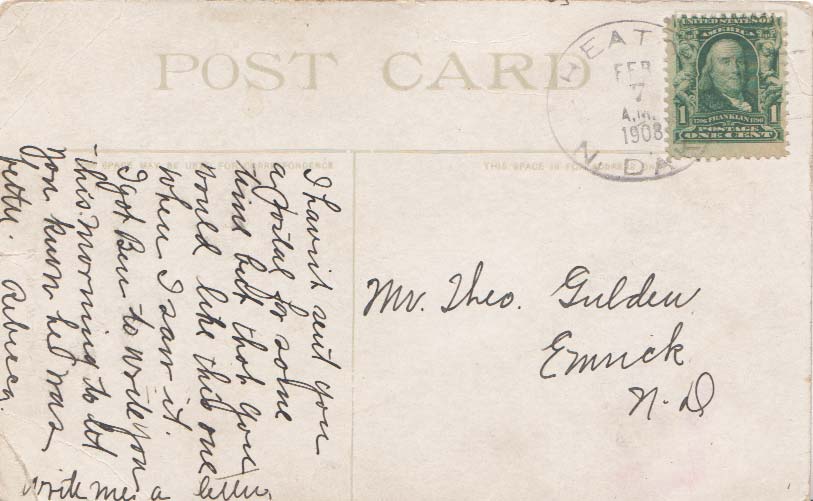 POST CARD
HEAT
FEB
7
A.M.
1908
N. DA
UNITED STATES OF
AMERICA
1 1706 FRANKLIN 1790 1
POSTAGE
ONE CENT
SPACE MAY BE USED FOR CORRESPONDENCE
THIS SPACE IS FOR ADDRESS ON
I havn't sent you
a postal for some
time but thot you
would like this one
when I saw it.
I got Ben to write you
this morning to let
you know he was
better. Rebecca.
write me a letter
Mr. Theo. Gulden
Emrick
N. D